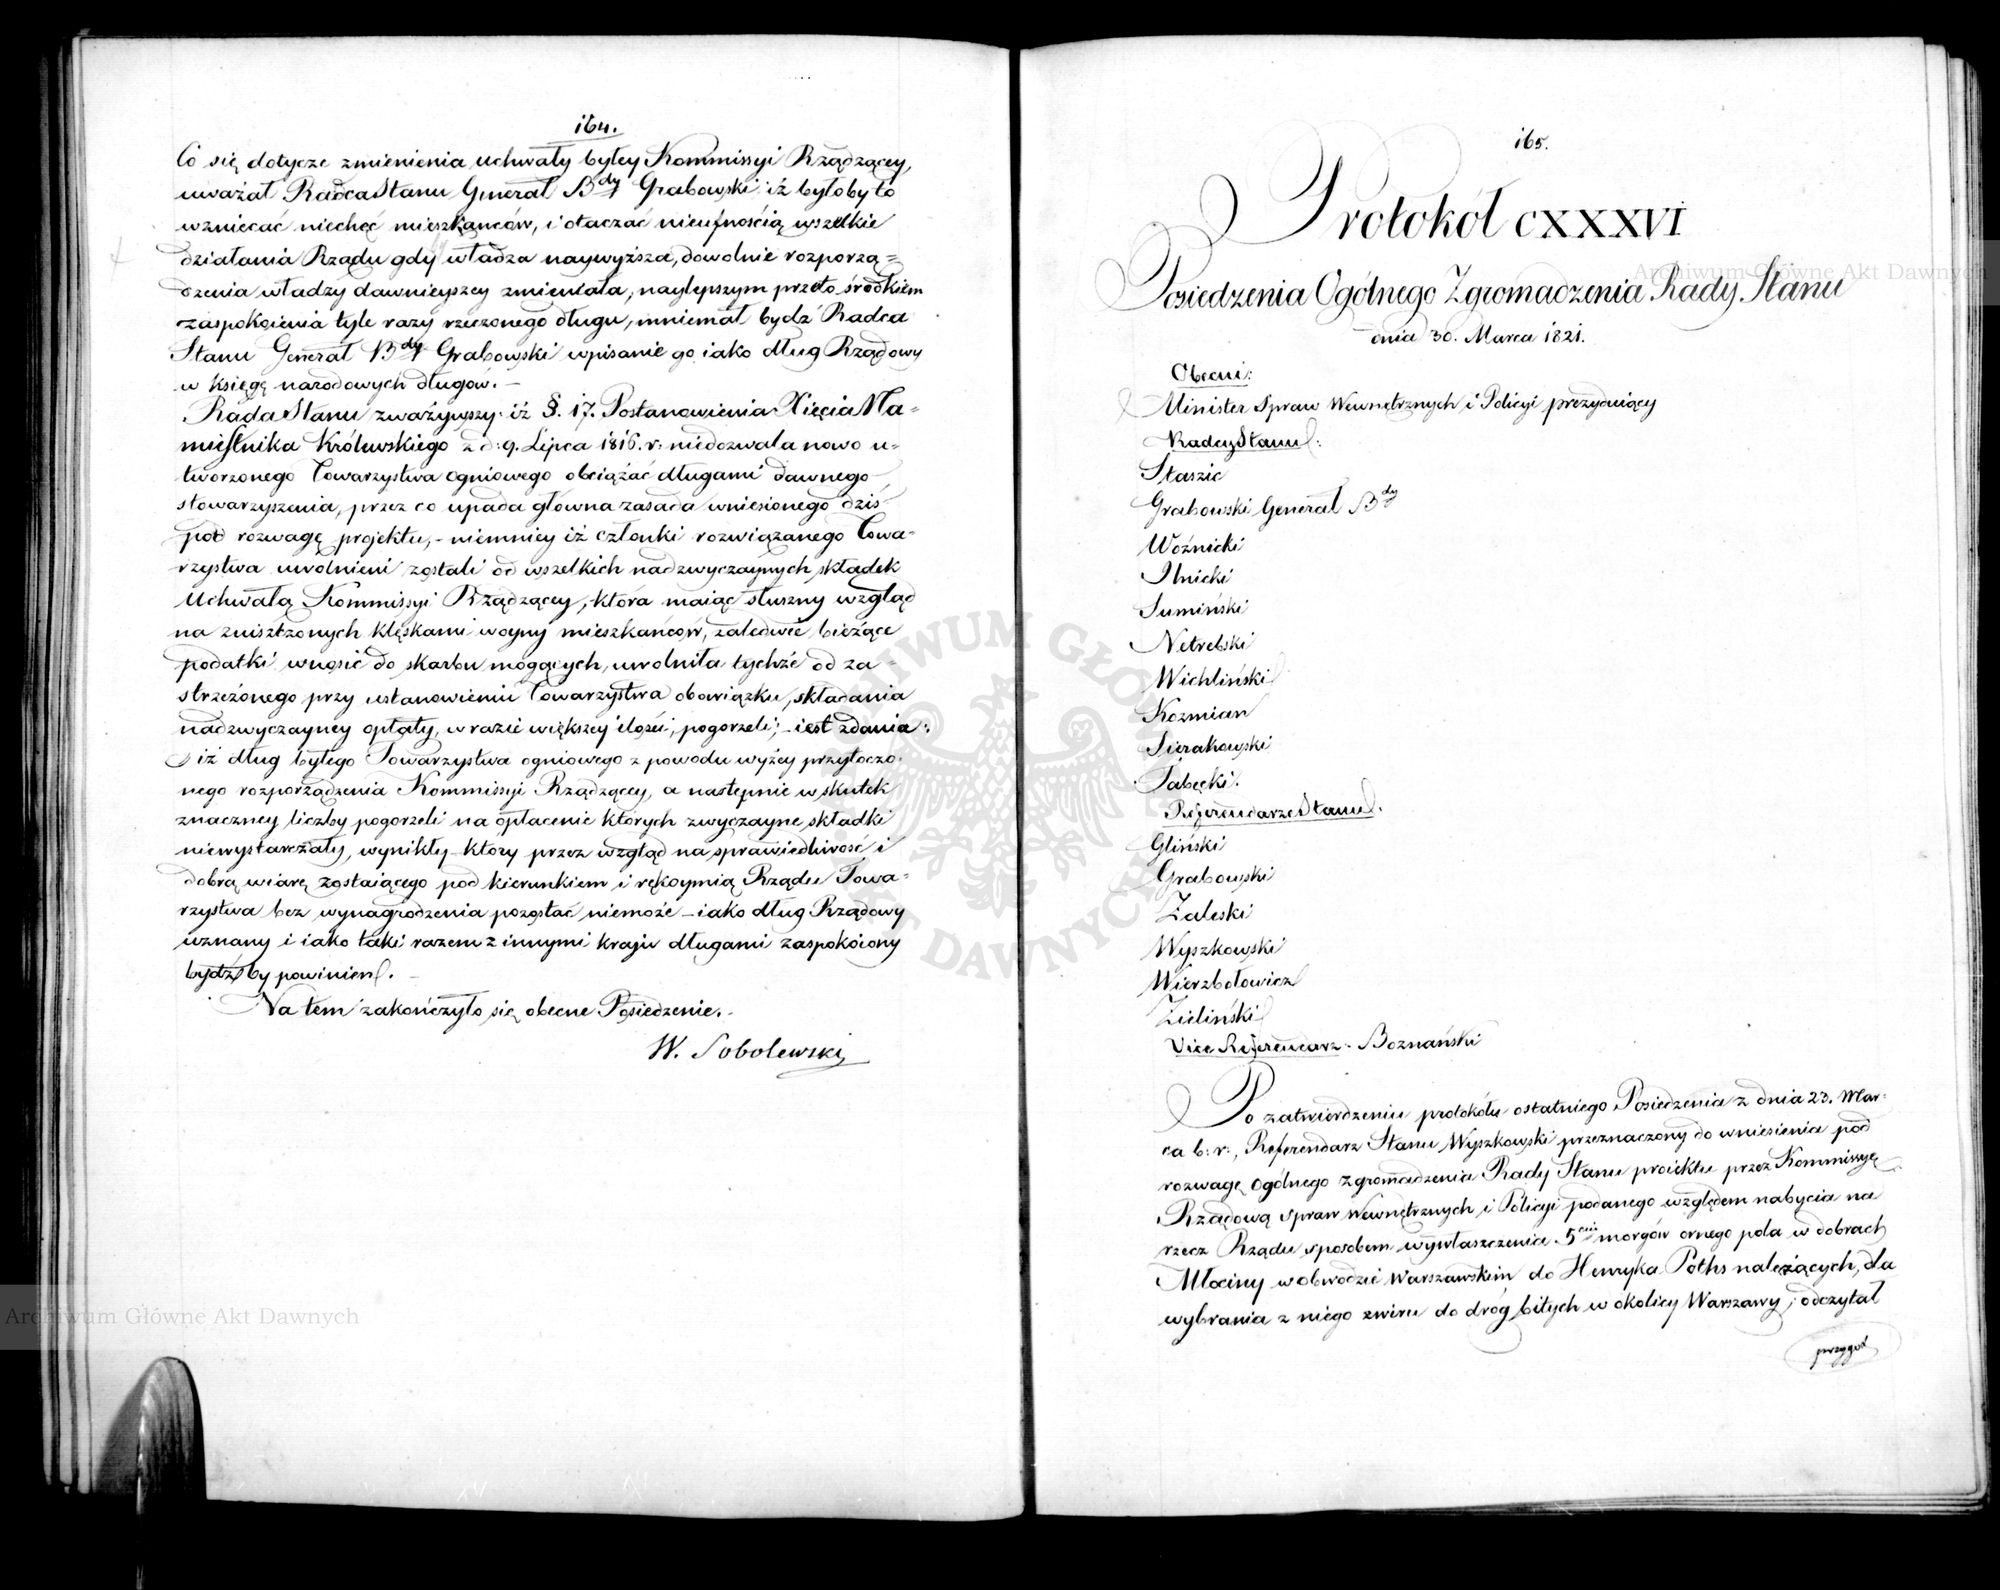 164.
Co się dotycze zmienienia uchwały byłey Kommissyi Rządzącey,
uważał Radca Stanu Generał Bdy Grabowski iż byłoby to
wzniecać niechęć mieszkańców, i otaczać nieufnością wszelkie
działania Rządu gdy władza naywyższa, dowolnie rozporzą=
dzenia władzy dawnieyszey zmieniała, naylepszym przeto środkiem
zaspokoienia tyle razy rzeczonego długu, mniemał bydź Radca
Stanu Generał Bdy Grabowski wpisanie go iako dług Rządowy
w księgę narodowych długów. –
Rada Stanu zważywszy iż §. 17. Postanowienia Xięcia Na=
miestnika Królewskiego z d: 9. Lipca 1816. r: niedozwala nowo u=
tworzonego Towarzystwa ogniowego obciążać długami dawnego
stowarzyszenia, przez co upada główna zasada wniesionego dziś
pod rozwagę projektu, – niemniey iż członki rozwiązanego Towa=
rzystwa uwolnieni zostali od wszelkich nadzwyczaynych składek
Uchwałą Kommissyi Rządzącey, która maiąc słuszny wzgląd
na zniszczonych klęskami woyny mieszkańców, zaledwie bieżące
podatki wnosić do skarbu mogących, uwolniła tychże od za=
strzeżonego przy ustanowieniu Towarzystwa obowiązku, składania
nadzwyczayney opłaty, w razie większey ilości, pogorzeli; – iest zdania:
iż dług byłego Towarzystwa ogniowego z powodu wyżey przytoczo=
nego rozporządzenia Kommissyi Rządzącey, a następnie w skutek
znaczney liczby pogorzeli na opłacenie których zwyczayne składki
niewystarczały, wynikły – który przez wzgląd na sprawiedliwość i
dobrą wiarę zostaiącego pod kierunkiem i rękoymią Rządu Towa=
rzystwa bez wynagrodzenia pozostać niemoże – iako dług Rządowy
uznany i iako taki razem z innymi kraju długami zaspokoiony
bydźby powinien. –
Na tem zakończyło się obecne Posiedzenie. –
W. Sobolewski
165.
Protokół CXXXVI
Posiedzenia Ogólnego Zgromadzenia Rady Stanu
dnia 30. Marca 1821.
Obecni:
Minister Spraw Wewnętrznych i Policyi prezyduiący
Radcy Stanu:
Staszic
Grabowski Generał Bdy
Woźnicki
Ilnicki
Sumiński
Netrebski
Wichliński
Kozmian
Sierakowski
Tabęcki.
Referendarze Stanu.
Gliński
Grabowski
Zaleski
Wyszkowski
Wierzbołowicz
Zieliński
Vice Referendarz – Boznański
Po zatwierdzeniu protokółu ostatniego Posiedzenia z dnia 23. Mar=
ca b: r:, Referendarz Stanu Wyszkowski przeznaczony do wniesienia pod
rozwagę Ogólnego Zgromadzenia Rady Stanu proiektu przez Kommissyę
Rządową Spraw Wewnętrznych i Policyi podanego względem nabycia na
rzecz Rządu sposobem wywłaszczenia 5ciu morgów ornego pola w dobrach
Młociny w obwodzie Warszawskim do Henryka Poths należących, dla
wybrania z niego zwiru do dróg bitych w okolicy Warszawy; odczytał
przygot
Archiwum Główne Akt Dawnych
Archiwum Główne Akt Dawnych
ARCHIWUM GŁÓWNE AKT DAWNYCH